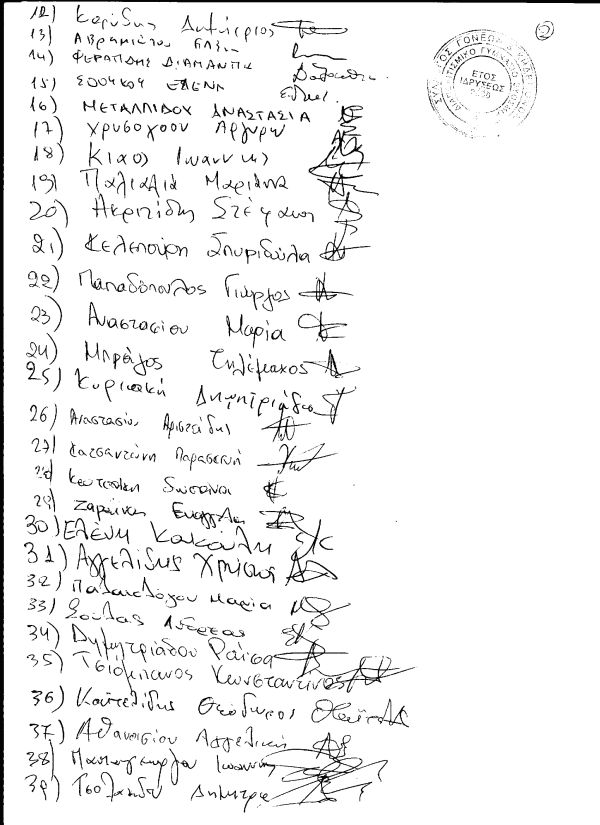 12) Καρύδης Δημήτριος
13) ΑΒΡΑΜΙΔΟΥ
14) ΦΕΡΑΠΙΔΗΣ ΔΙΑΜΑΝΤΗΣ
15) ΣΟΟΥΚΟΥ ΕΛΕΝΗ
16) ΜΕΤΑΛΛΙΔΟΥ ΑΝΑΣΤΑΣΙΑ
17) Χρυσοχοου Αργυρη
18) Κιαος Ιωαννης
19) Παλιαλιά Μαριάννα
20) Ακριτίδης Στέφανος
21) Κελεπούρη Σπυριδούλα
22) Παπαδόπουλος Γιώργος
23) Αναστασίου Μαρία
24) Μπράγος Τηλέμαχος
25) Κυριακή Δημητριάδου
26) Αναστασίου Αριστείδης
27) Κατσαντώνη Παρασκευή
28)
29) Ζαρωίνη
30) Ελένη Κακούλη
31) Αγγελίδης Χρήστος
32) Παλαιολόγου Μαρία
33) Σούλας Ανδρέας
34) Δημητριάδου Ραΐσα
35) Τσιόμπανος Κωνσταντίνος
36) Καπελίδης Θεόδωρος
37) Αθανασίου Αγγελική
38) Παπαγεωργίου Ιωάννης
39) Τσολακίδη Δήμητρα
ΕΤΟΣ
ΙΔΡΥΣΕΩΣ
2